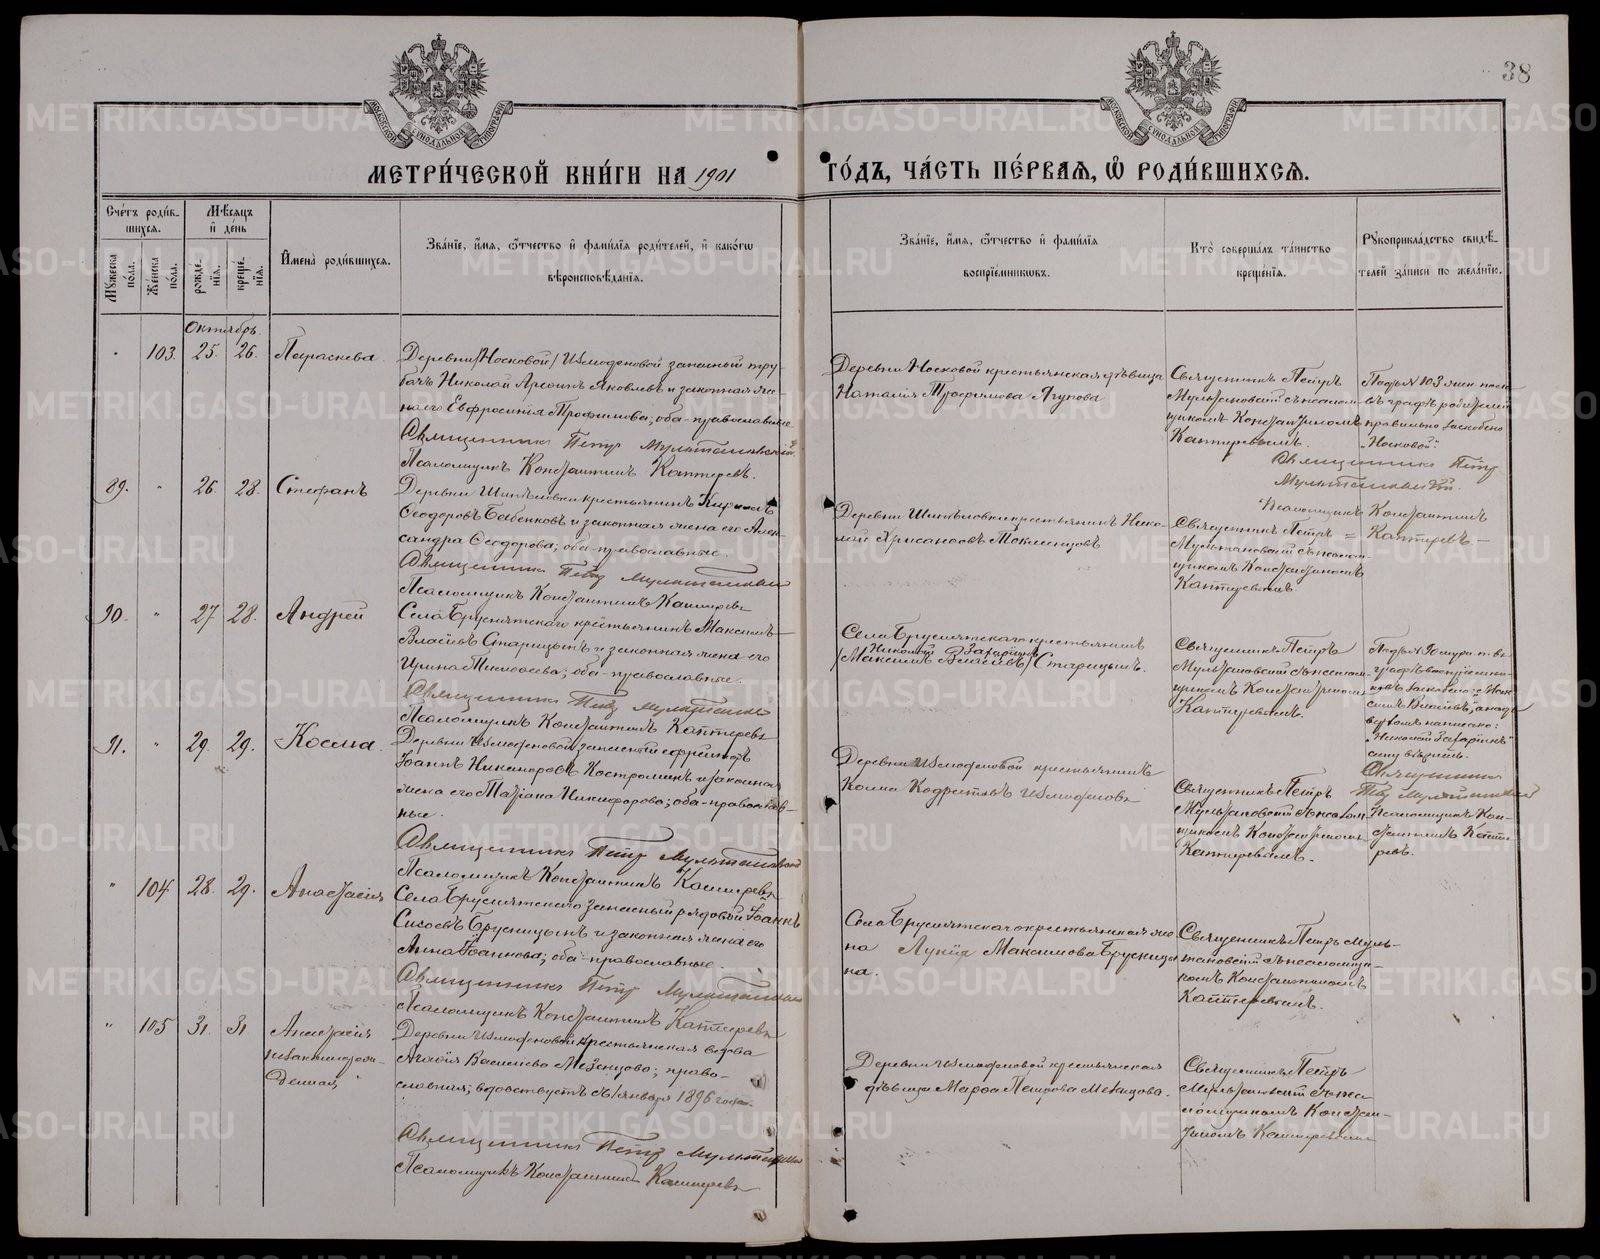 38
МЕТРИ́ЧЕСКОЙ КНИ́ГИ НА 1901
ГО́ДЪ, ЧА́СТЬ ПЕ́РВАЯ, Ѡ РОДИ́ВШИХСЯ.
Сче́тъ роди́в-
шихся.
Му́жеска пола.
Же́нска пола.
Мѣ́сяцъ
и҆ де́нь
рожде́-
нїя.
креще́-
нїя.
И҆мена̀ роди́вшихся.
Зва́нїе, и҆́мя, ѻ҆́тчество и҆ фами́лїя роди́телей, и҆ како́гѡ
вѣроисповѣ́данїя.
Зва́нїе, и҆́мя, ѻ҆́тчество и҆ фами́лїя
воспрїе́мниковъ.
Кто̀ соверша́лъ та́инство
креще́нїя.
Рꙋкоприкла́дство свидѣ́-
телей за́писи по жела́нїю.
Октябрь.
103. 25. 26. Параскева
Деревни /Носковой/ Измоденовой запасный тру-
бачъ Николай Яковлевъ и законная же-
на его Евфросинія Трофимова; оба православные.
Священникъ Петр Мультановскій
Псаломщикъ Константинъ Каптеревъ.
Деревни Носковой крестьянская дѣвица
Наталія Трофимова Ягупова
Священникъ Петръ
Мультановскій съ псалом-
щикомъ Константиномъ
Каптеревымъ.
Подъ № 103 жен. пола
въ графѣ родителей
правильно заскоблено
„Носковой“.
Священникъ Петр
Мультановскій.
Псаломщикъ Константинъ
Каптеревъ.
89. " 26. 28. Стефанъ
Деревни Шипѣловки крестьянинъ Кириллъ
Ѳеодоровъ Бабенковъ и законная жена его Алек-
сандра Ѳеодорова; оба православные.
Священникъ Петр Мультановскій
Псаломщикъ Константинъ Каптеревъ
Деревни Шипѣловки крестьянинъ Нико-
лай Хрисанфовъ
Священникъ Петръ
Мультановскій съ псалом-
щикомъ Константиномъ
Каптеревымъ.
90. " 27 28. Андрей
Села Бруснятскаго крестьянинъ Максимъ
Власіевъ Старицынъ и законная жена его
Ирина Тимофеева; оба православные.
Священникъ Петр Мультановскій
Псаломщикъ Константинъ Каптеревъ
Села Бруснятскаго крестьянинъ
Николай Захаринъ
/Максимъ Власіевъ/ Старицынъ.
Священникъ Петръ
Мультановскій съ псалом-
щикомъ Константиномъ
Каптеревымъ.
Подъ № 90 муж. п. въ
графѣ воспріемни-
ковъ заскоблено: „Мак-
симъ Власіевъ“, а надъ
написано:
„Николай Захаринъ“
сему вѣрить.
Священникъ
Петр Мультановскій
Псаломщикъ Кон-
стантинъ Капте-
ревъ.
91. " 29. 29. Косма.
Деревни Измоденовой запасный ефрейторъ
Іоаннъ Никаноровъ Костроминъ и законная
жена его Татіана Никифорова; оба православ-
ные.
Священникъ Петр Мультановскій
Псаломщикъ Константинъ Каптеревъ
Деревни Измоденовой крестьянинъ
Козма Кодратовъ Измоденовъ
Священникъ Петръ
Мультановскій съ псалом-
щикомъ Константиномъ
Каптеревымъ.
" 104. 28. 29. Анастасія
Села Бруснятскаго запасный рядовой Іоаннъ
Сысоевъ Брусницынъ и законная жена его
Анна Іоаннова; оба православные.
Священникъ Петр Мультановскій
Псаломщикъ Константинъ Каптеревъ
Села Бруснятскаго крестьянская же-
на Лукія Максимова Брусницы-
на.
Священникъ Петръ Муль-
тановскій съ псаломщи-
комъ Константиномъ
Каптеревымъ.
" 105 31. 31 Анастасія
незаконнорож-
денная
Деревни Измоденовой крестьянская вдова
Агаѳія Васильева Мезенцова; право-
славная; вдовствуетъ съ января 1896 года.
Священникъ Петр Мультановскій
Псаломщикъ Константинъ Каптеревъ
Деревни Измоденовой крестьянская
дѣвица Марѳа Петрова Мезенцова.
Священникъ Петръ
Мультановскій съ пса-
ломщикомъ Констан-
тиномъ Каптеревымъ
METRIKI.GASO-URAL.RU